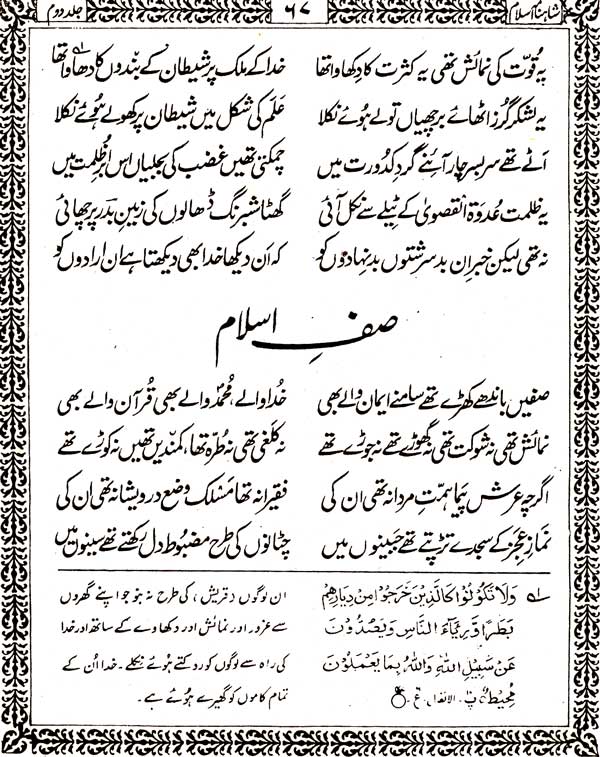 شاہنامۂ اسلام ۶۷ جلد دوم
یہ قُوّت کی نمائش تھی یہ کثرت کا دکھاوا تھا خدا کے ملک پر شیطان کے بندوں کا دھاوا تھا
یہ لشکر گرز اٹھائے برچھیاں تولے ہُوئے نکلا عَلَم کی شکل میں شیطان پر کھولے ہُوئے نکلا
اَٹے تھے سر بسر چار آئنے گردِ کدُورت میں چمکتی تھیں غضب کی بجلیاں اس ابرِ ظلمت میں
یہ ظلمت عُدوَۃ القصویٰ کے ٹیلے سے نکل آئی گھٹا شبرنگ ڈھالوں کی زمینِ بدر پر چھائی
نہ تھی لیکن خبر اِن بد سرشتوں بد نہادوں کو کہ اَن دیکھا خدا بھی دیکھتا ہے ان ارادوں کو
صفِ اسلام
صفیں باندھے کھڑے تھے سامنے ایمان والے بھی خُدا والے، مُحمدؐ والے بھی قُرآن والے بھی
نمائش تھی نہ شوکت تھی نہ گھوڑے تھے نہ جوڑے تھے نہ کلغی تھی نہ طُرّہ تھا، کمندیں تھیں نہ کوڑے تھے
اگرچہ عرش پیما ہمتِ مردانہ تھی ان کی فقیرانہ تھا مَسلک وضع درویشانہ تھی ان کی
نمازِ عجز کے سجدے تڑپتے تھے جبینوں میں چٹانوں کی طرح مضبوط دل رکھتے تھے سینوں میں
۱؎ وَلَا تَكُوْنُوْا كَالَّذِيْنَ خَرَجُوْا مِنْ دِيَارِهِمْ
بَطَرًا وَّرِئَآءَ النَّاسِ وَيَصُدُّوْنَ
عَنْ سَبِيْلِ اللّٰهِ وَاللّٰهُ بِمَا يَعْمَلُوْنَ
مُحِيْطٌ پ۔ الانفال۔ ع۔
ان لوگوں (قریش) کی طرح نہ بنو جو اپنے گھروں
سے غرور اور نمائش اور دکھاوے کے ساتھ اور خدا
کی راہ سے لوگوں کو روکتے ہُوئے نکلے۔ خدا اُن کے
تمام کاموں کو گھیرے ہُوئے ہے۔